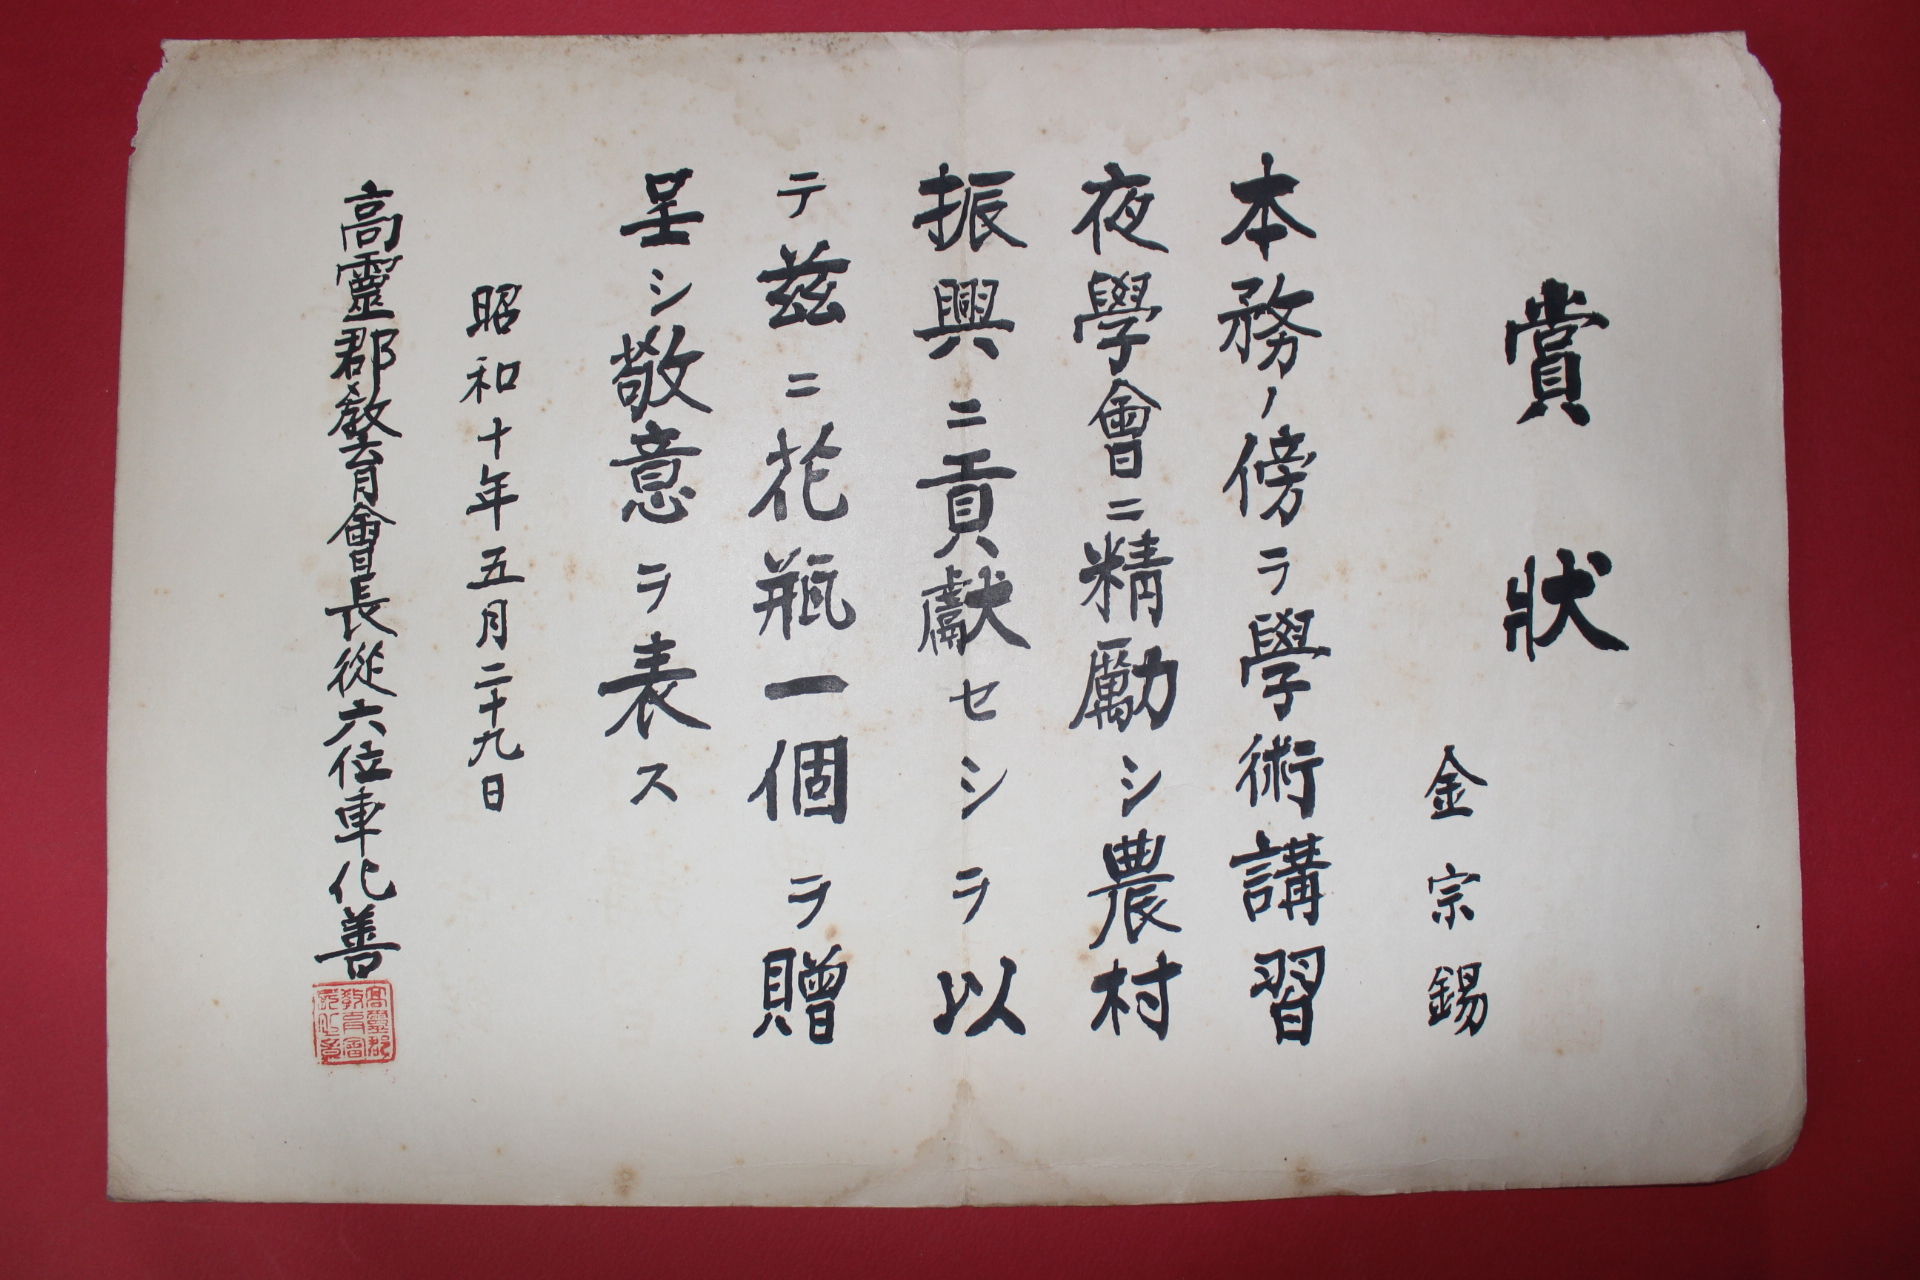 賞狀
金宗錫
本務ノ傍ラ學術講習
夜學會ニ精勵シ農村
振興ニ貢獻セシヲ以
テ茲ニ花瓶一個ヲ贈
呈シ敬意ヲ表ス
昭和十年五月二十九日
高靈郡敎育會長從六位車化善
高靈郡
敎育會
長之章